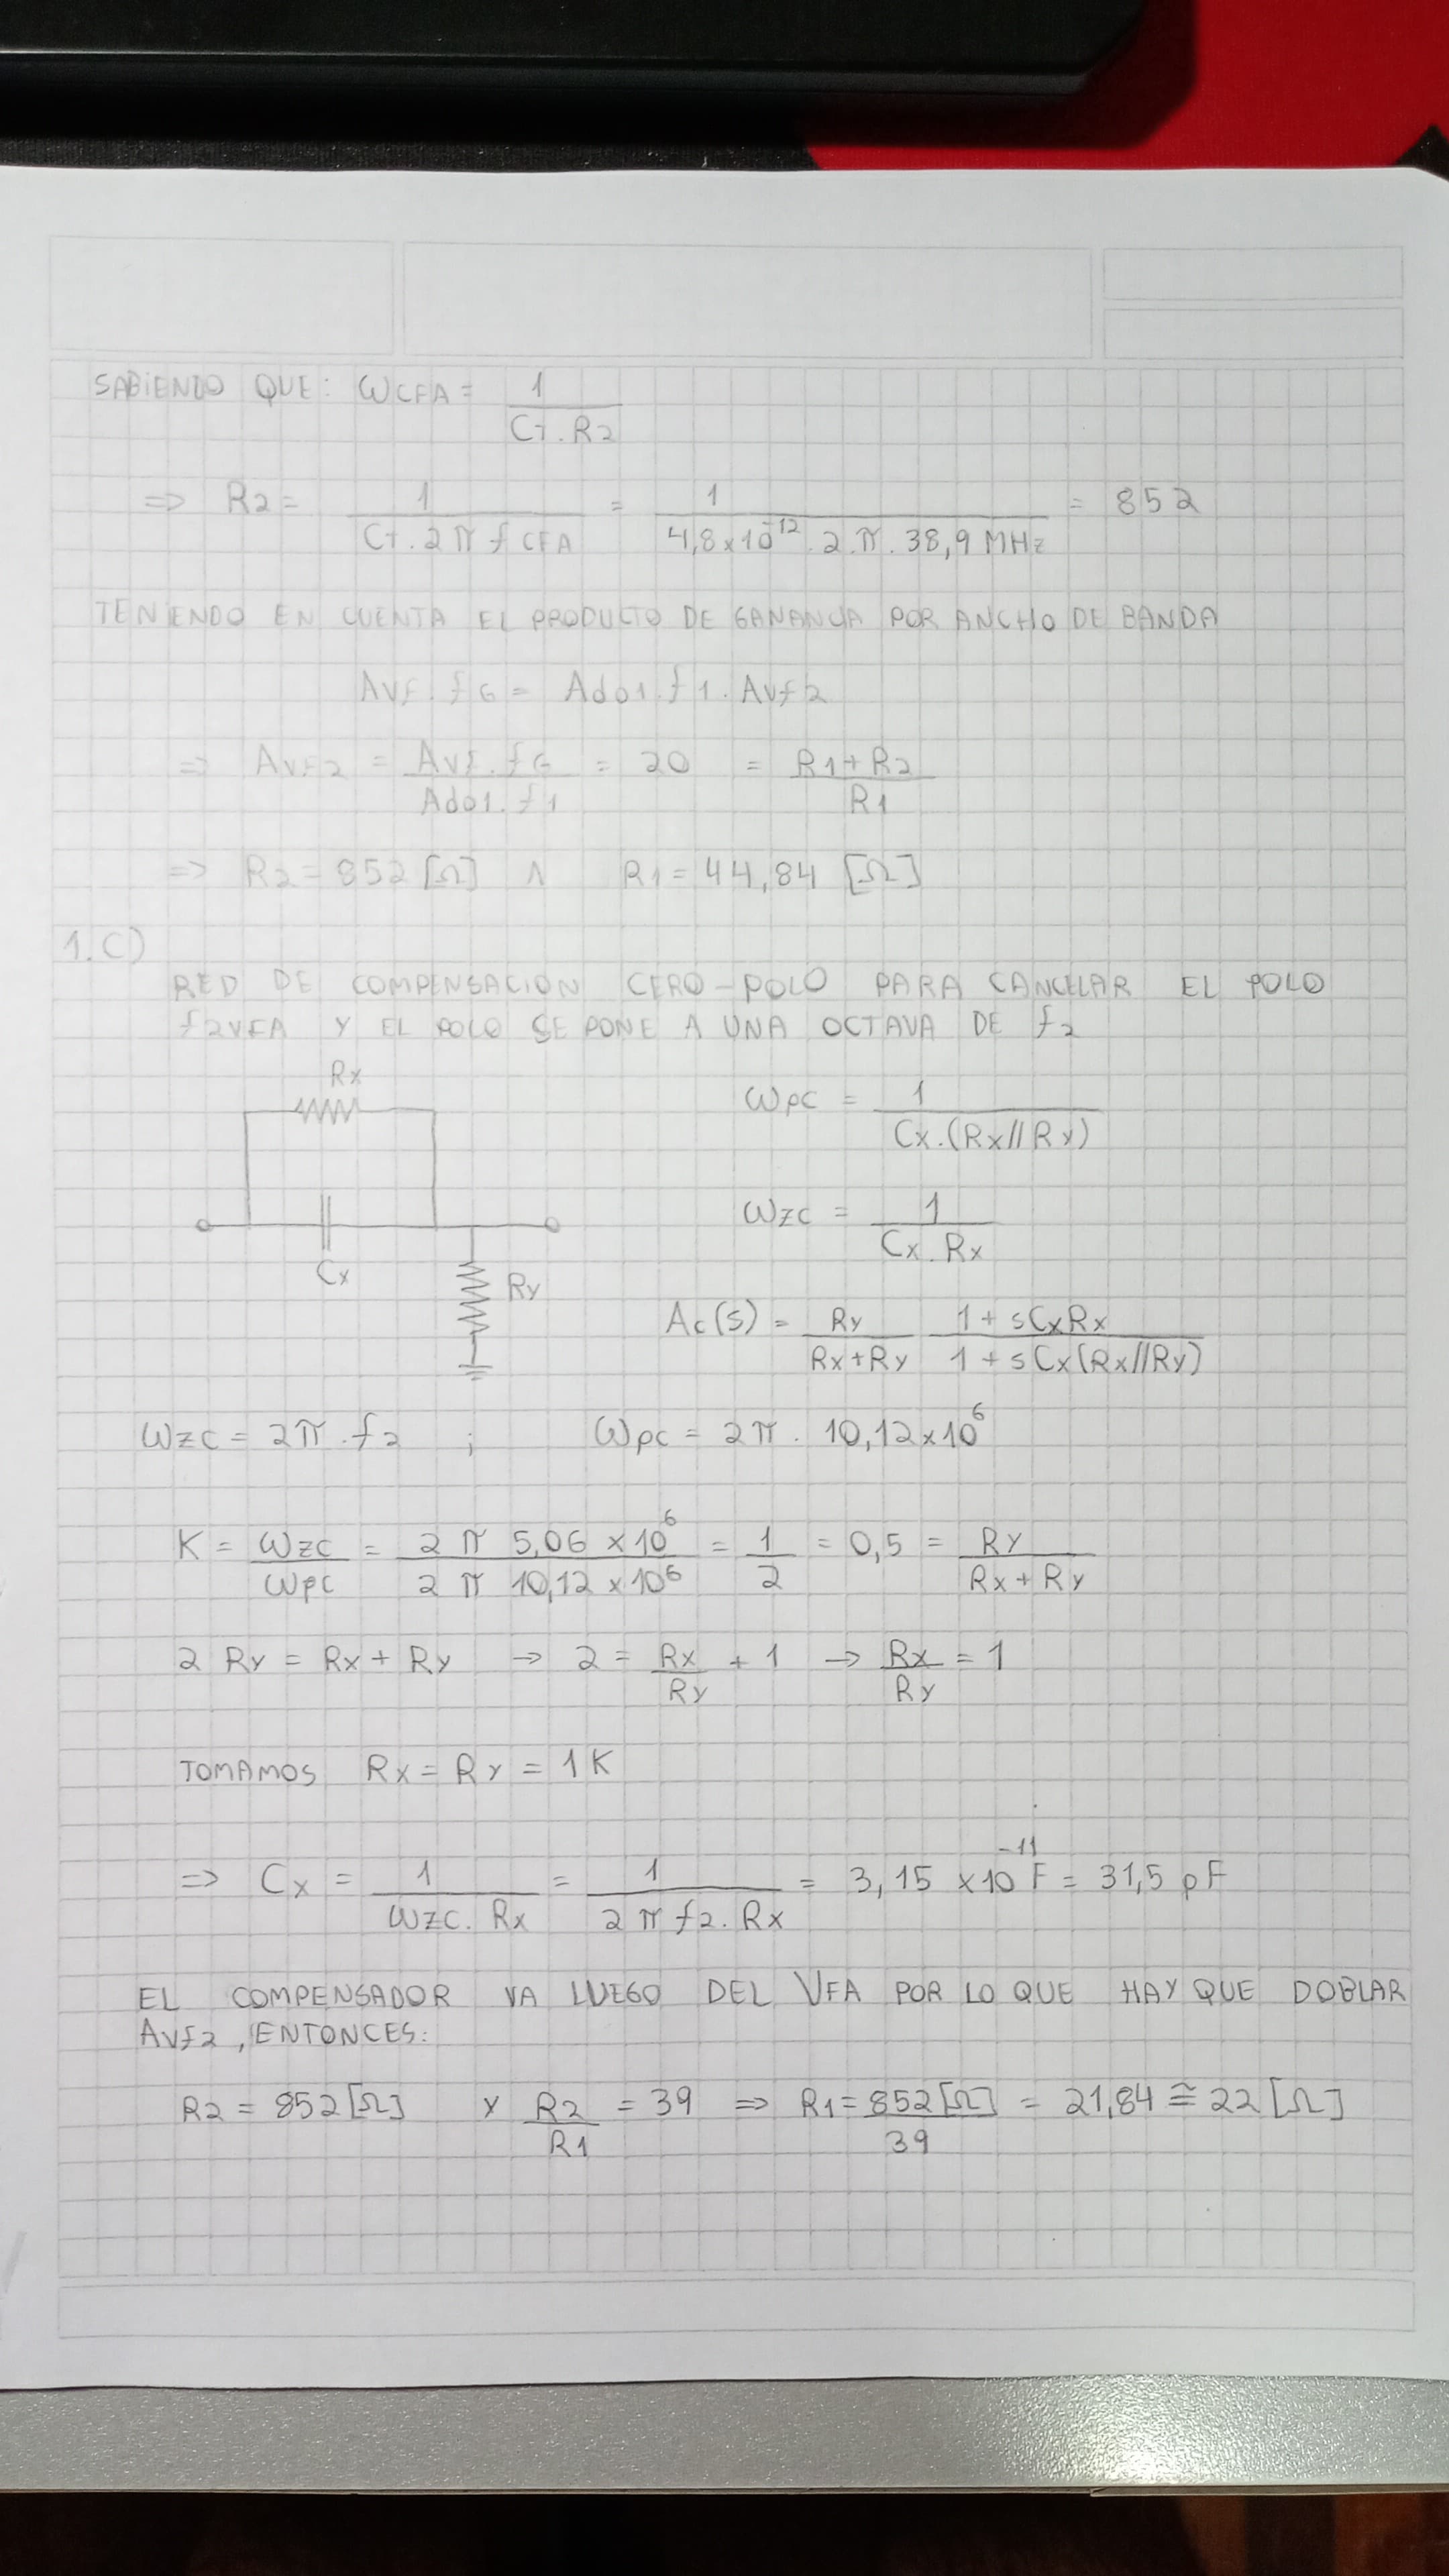 SABIENDO QUE: ωCFA = 1 / (CT . R2)
=> R2 = 1 / (CT . 2 π f CFA) = 1 / (4,8 x 10^-12 . 2 . π . 38,9 MHz) = 852
TENIENDO EN CUENTA EL PRODUCTO DE GANANCIA POR ANCHO DE BANDA
AVF . fG = Ado1 . f1 . Avf2
=> AVF2 = AVF . fG / (Ado1 . f1) = 20 = (R1 + R2) / R1
=> R2 = 852 [Ω] ∧ R1 = 44,84 [Ω]
1.C)
RED DE COMPENSACION CERO-POLO PARA CANCELAR EL POLO
f2VFA Y EL POLO SE PONE A UNA OCTAVA DE f2
Rx
Cx
Ry
ωpc = 1 / (Cx . (Rx // Rx))
ωzc = 1 / (Cx . Rx)
Ac(s) = Ry / (Rx + Ry) (1 + sCxRx) / (1 + sCx(Rx//Ry))
ωzc = 2π . f2 ; ωpc = 2π . 10,12 x 10^6
K = ωzc / ωpc = (2 π 5,06 x 10^6) / (2 π 10,12 x 10^6) = 1 / 2 = 0,5 = Ry / (Rx + Ry)
2 Ry = Rx + Ry → 2 = Rx / Ry + 1 → Rx / Ry = 1
TOMAMOS Rx = Ry = 1 K
=> Cx = 1 / (ωzc . Rx) = 1 / (2 π f2 . Rx) = 3,15 x 10^-11 F = 31,5 pF
EL COMPENSADOR VA LUEGO DEL VFA POR LO QUE HAY QUE DOBLAR
AVf2, ENTONCES:
R2 = 852 [Ω] Y R2 / R1 = 39 => R1 = 852 [Ω] / 39 = 21,84 ≅ 22 [Ω]